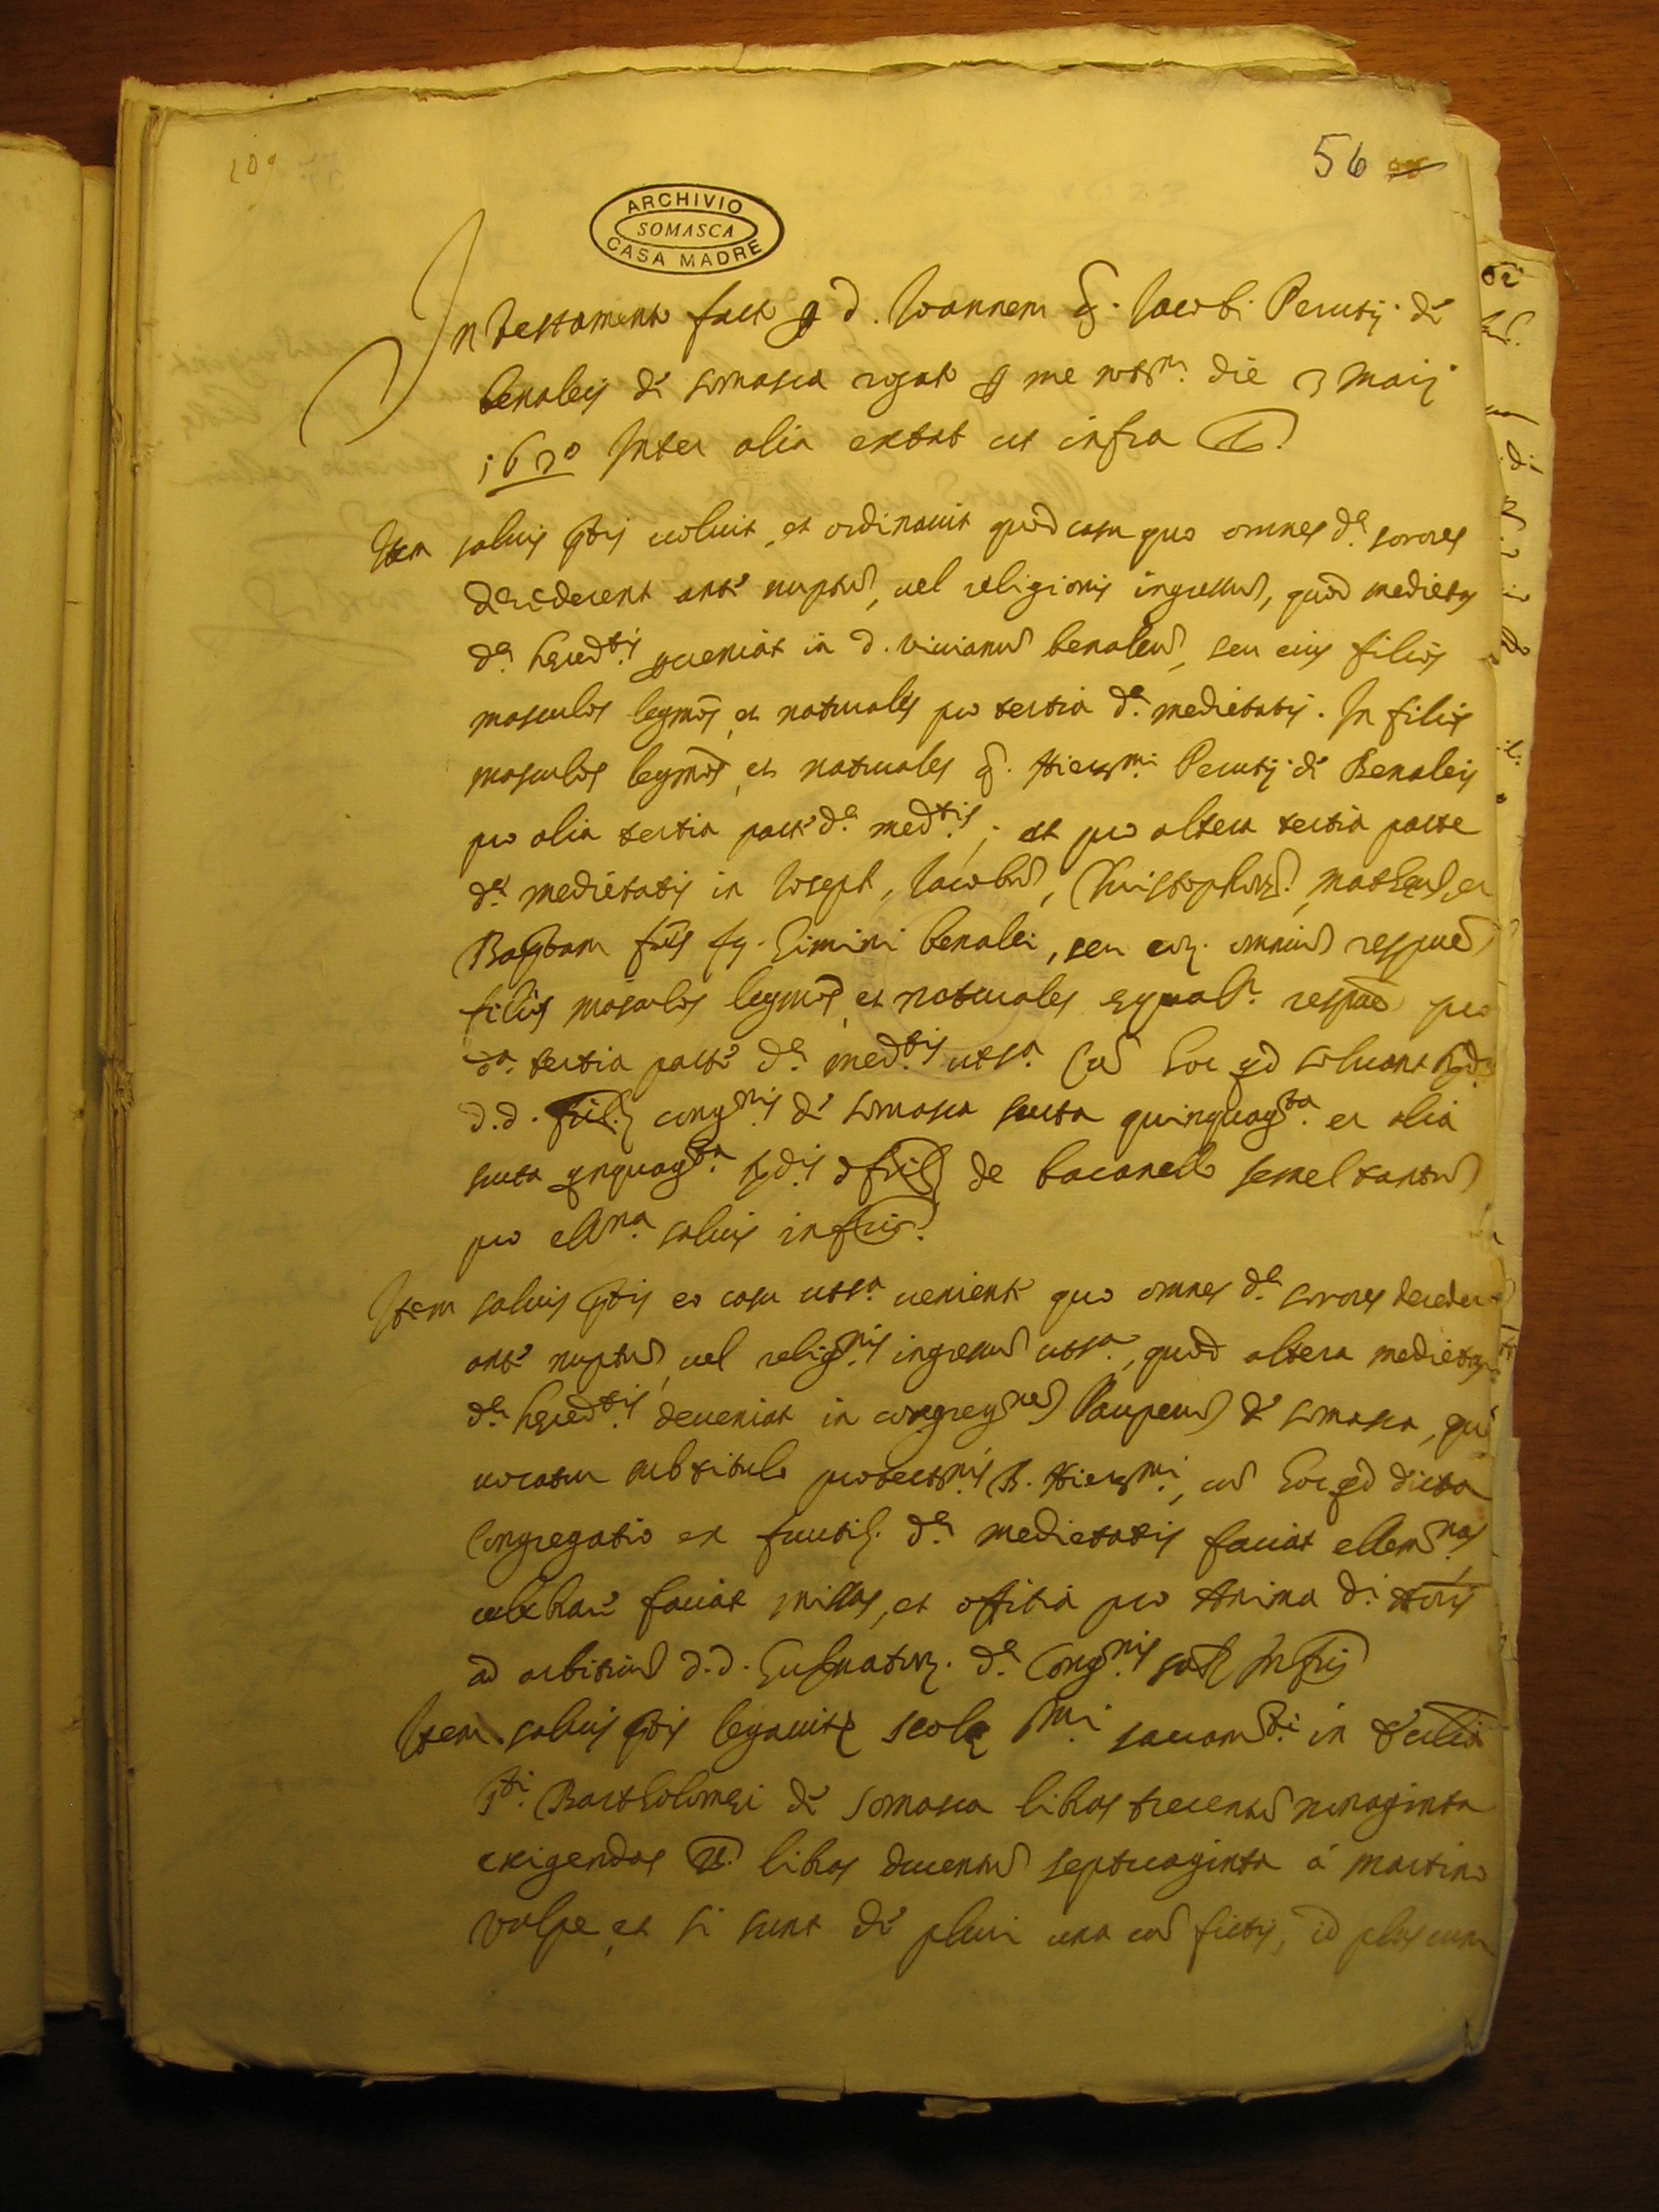 109
56
ARCHIVIO
SOMASCA
CASA MADRE
In Testamento facto p d. Ioannem q. Iacobi Perutij de
benaleis de somasca rogato p me notm. die 3 Maij
1630 Inter alia extat ut infra
Item saluis ptis uoluit, et ordinauit quod casu quo omnes de sorores
decederent ante nuptus, uel religionis ingressus, quod medietas
de heredtis perueniat in d. viuianus benaleus, seu eius filios
masculos legmos, et naturales pro tertia de medietatis. In filios
masculos legmos, et naturales q. Hiermi Perutij de Benaleis
pro alia tertia parte de medtis; et pro altera tertia parte
de medietatis in Ioseph, Iacobus, Christophorus, matheus et
fres q. Gimini benalei, seu eor. omnius respue
filios masculos legmos, et naturales equalr. respue pro
da tertia parte de medtis utsa. Cus hoc qd soluant
d.d. congnis de somasca scuta quinquagta. et alia
scuta qnquagta. de bacanello semel tantus
pro elna. saluis infris.
Item saluis ptis eo casu utsa. ueniente quo omnes de sorores
ante nuptus, uel relignis ingressus utsa., quod altera medietas
de heredtis deueniat in congregnes Pauperus de somasca, que
uocatur sub titulo protectnis B. Hiermi, cus hoc qd dicta
Congregatio ex fructis. de medietatis faciat elemnas
celebrare faciat missas, et offitia pro Anima di Toris
ad arbitrius d.d. Gubnator. de Congnis infris
Item saluis ptis legauit scole smi sacramti in
sti. Bartholomei de Somasca libras trecentus nonaginta
exigendas libras ducentus septuaginta à martino
volpe, et si sunt de pluri una cus fictis, id plus